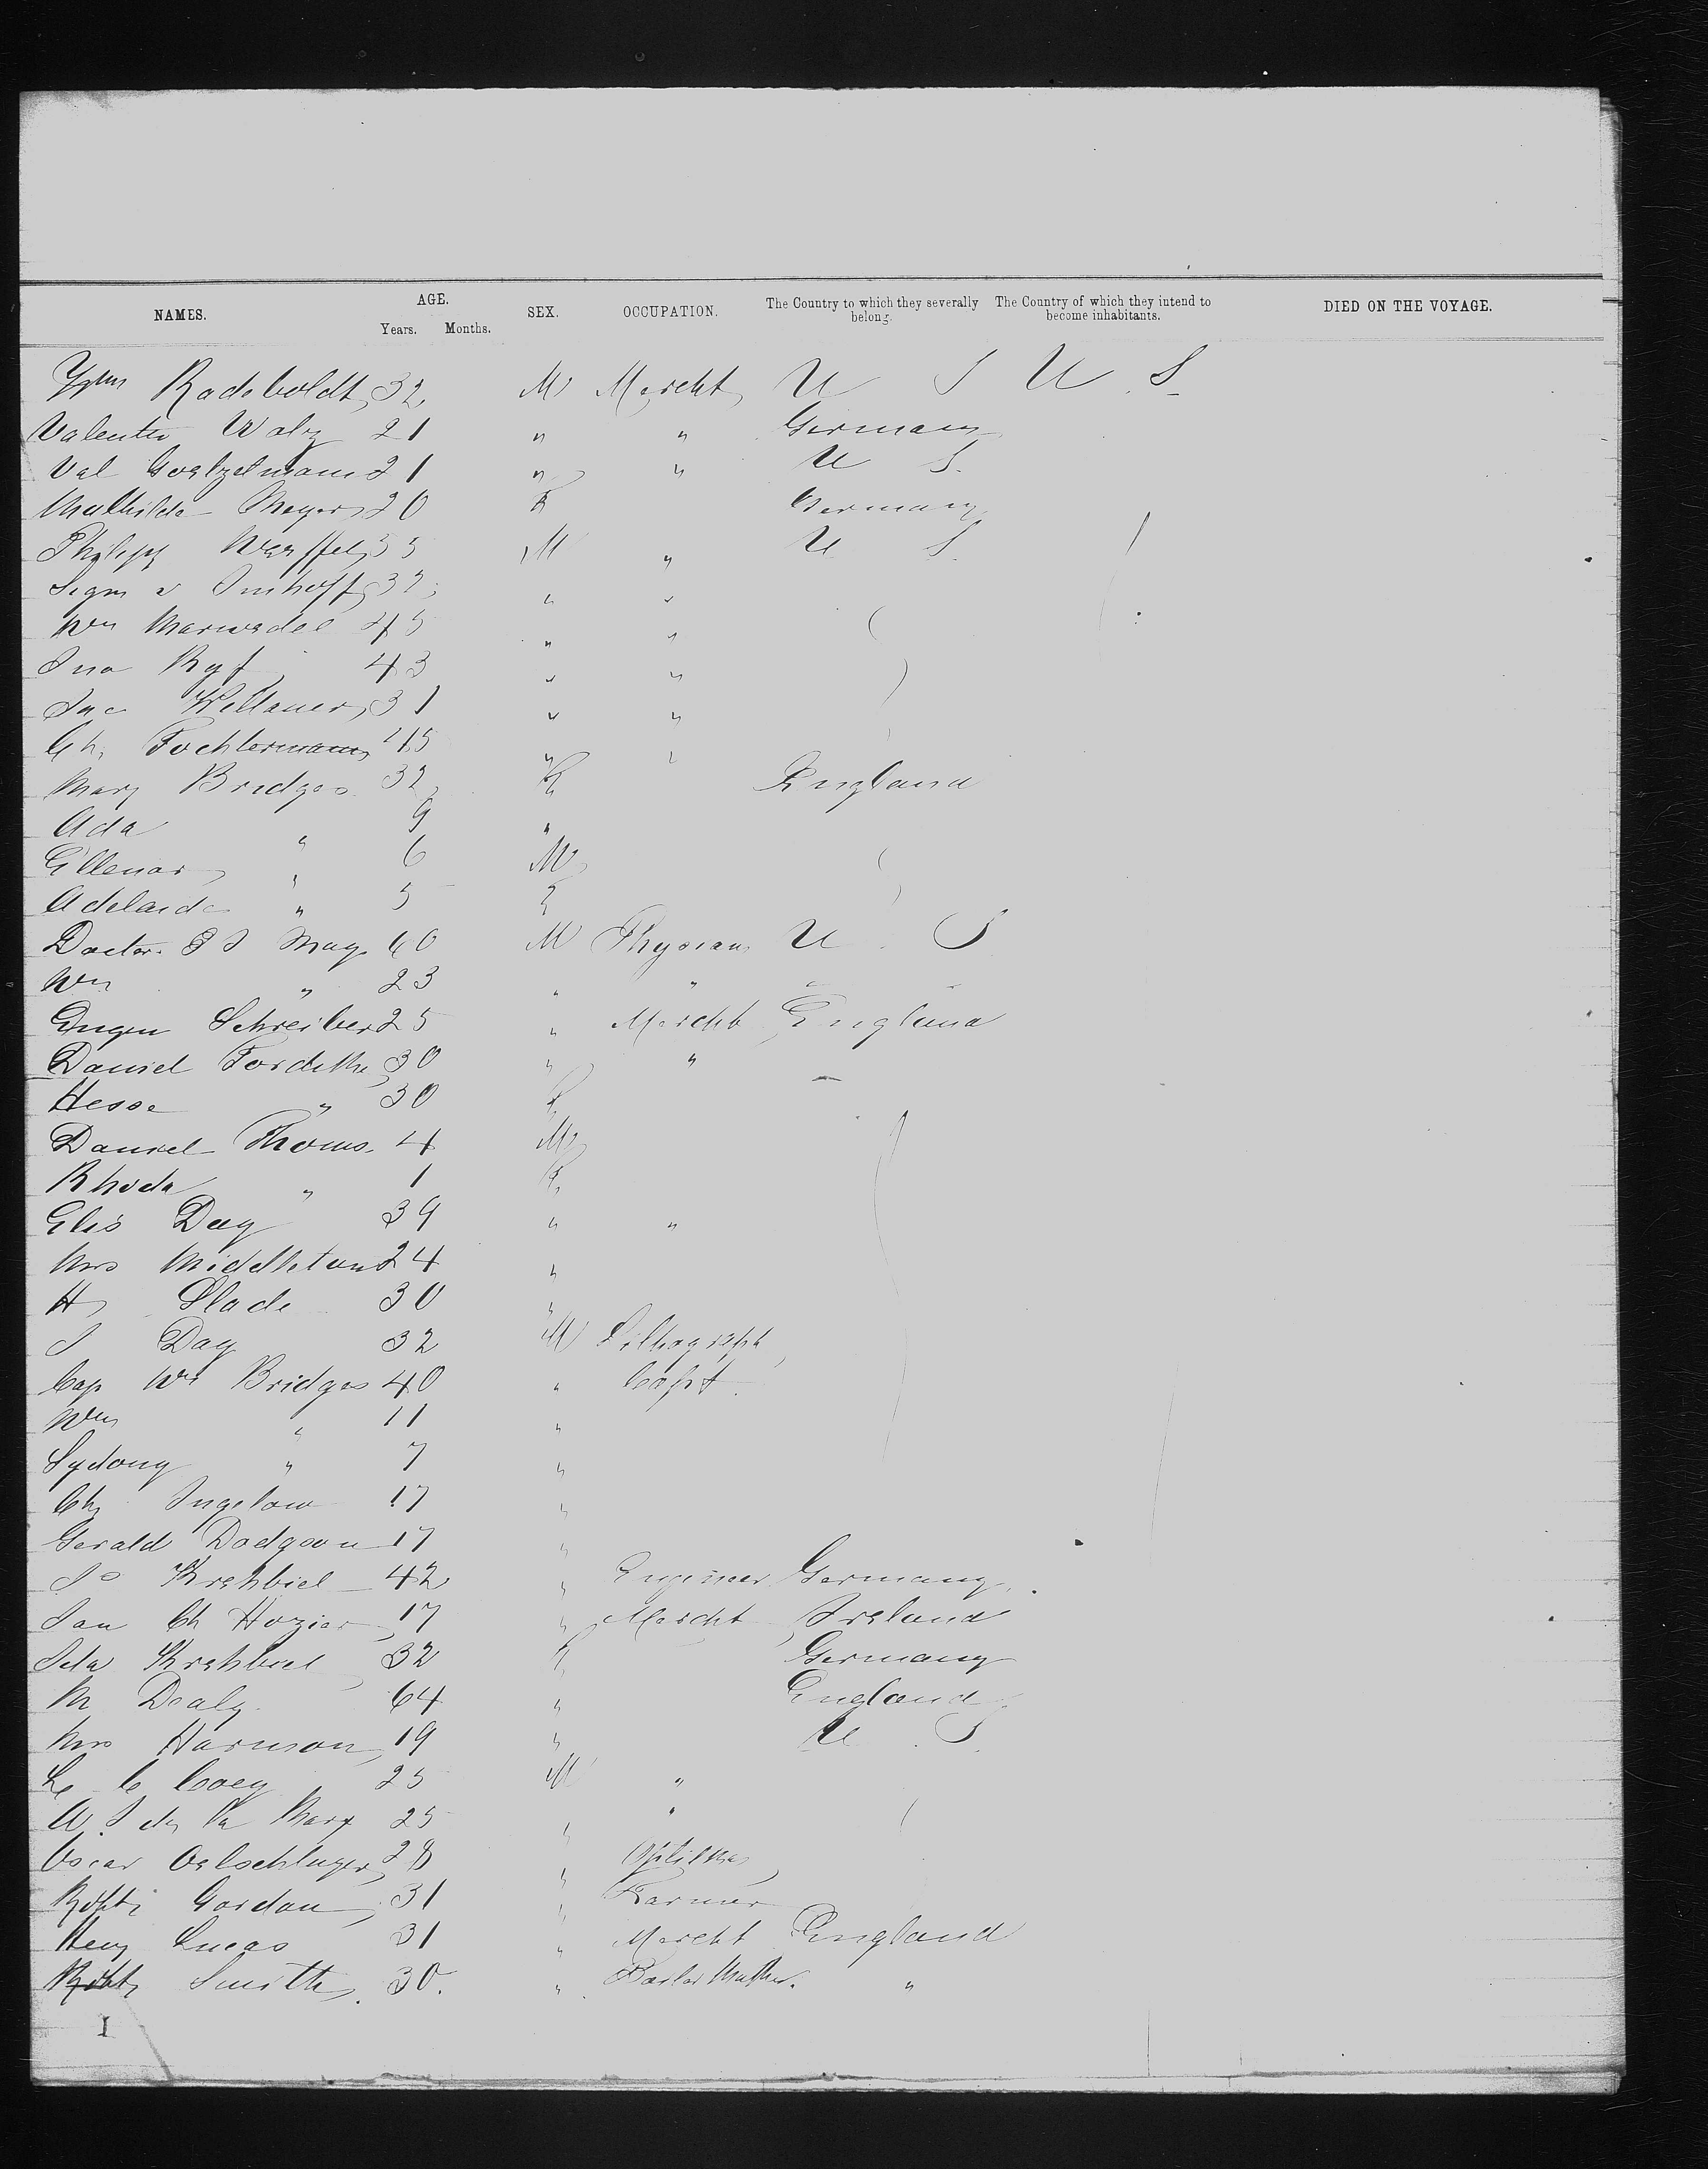 NAMES. AGE. Years. Months. SEX. OCCUPATION. The Country to which they severally belong. The Country of which they intend to become inhabitants. DIED ON THE VOYAGE.
Radeboldt 32 M Mercht U S U S
Valentin Walz 21 " " Germany
Val 21 " " U S
Mathilda Meyer 20 F Germany
M " U S
Sigm v Imhoff " "
Wm Marwedel 45 " "
Jno Ryf 43 " "
Jac 31 " "
Ch Tochtermann 45 " "
Mary Bridges 32 F England
Ada " 9 "
Ellenor " 6 M
Adelaide " 5 F
Doctor May 60 M Physcian U S
Wm " 23 " "
Eugen Schreiber 25 " Mercht England
Daniel 30 " "
Hesse " 30 F
Daniel Thoms. 4 M
Rhoda " 1 F
Elis Day 39 " "
Mrs Middleton 24 "
H Slade 30 "
J Day 32 M Lithograph
Cap Wm Bridges 40 " Capt.
Wm " 11 "
Sydony " 7 "
Ch Ingelow 17 "
Gerald Dodgson 17 "
Jo Krehbiel 42 " Engineer Germany
Ch Hozier 17 " Mercht Ireland
Ida Krehbiel 32 F Germany
M Dealy 64 " England
Mrs Harrison 19 " U S
C Covey 25 M "
25 " "
Oscar Oelschlager 28 "
Robt Gordon 31 " Farmer
Heny Lucas 31 " Mercht England
Robt Smith 30. " Boiler Maker. "
I